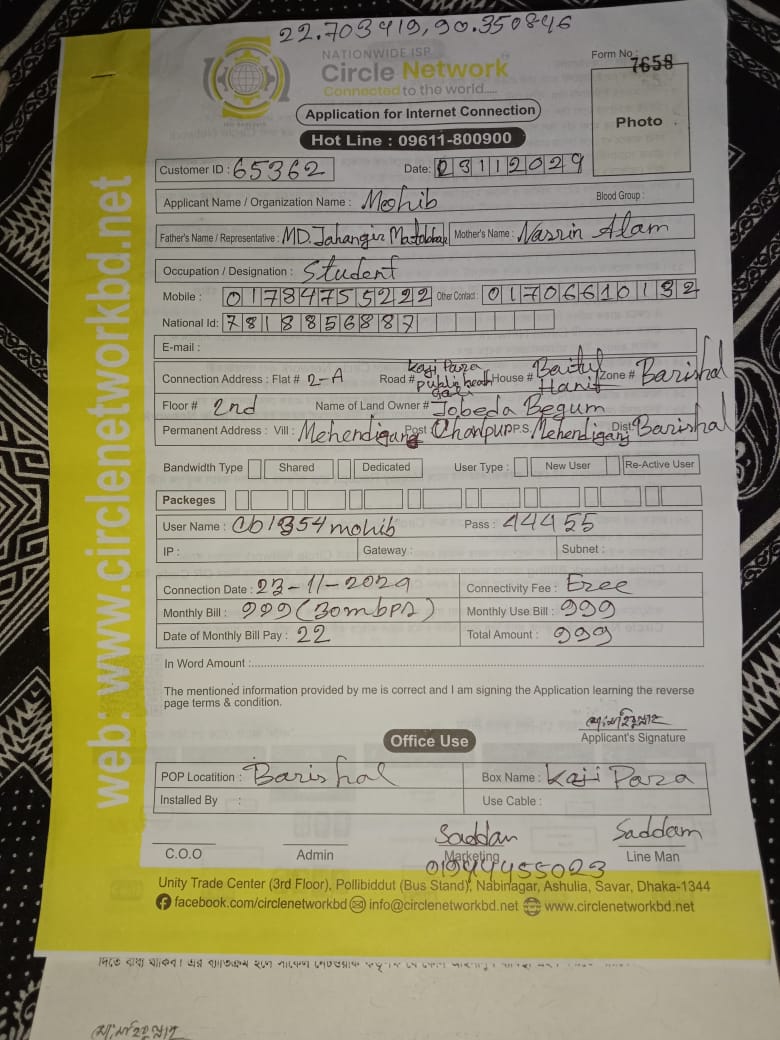 22.703419,90.350846
NATIONWIDE ISP
Circle Network
Connected to the world.....
Form No :
7658
Application for Internet Connection
Photo
Hot Line : 09611-800900
Customer ID : 65362 Date: 03112029
Applicant Name / Organization Name : Mohib Blood Group :
Father's Name / Representative : MD. Jahangir Mother's Name : Nasrin Alam
Occupation / Designation : Student
Mobile : 01784755222 Other Contact : 01706610132
National Id: 7818856887
E-mail :
Connection Address : Flat # 2-A Road # Kaji Para public heath gali House # Baitul Hanif Zone # Barishal
Floor # 2nd Name of Land Owner # Jobeda Begum
Permanent Address : Vill : Mehendigang Post Chanpur P.S. Mehendiganj Dist Barishal
Bandwidth Type Shared Dedicated User Type : New User Re-Active User
Packeges
User Name : cb1354mohib Pass : 44455
IP : Gateway : Subnet :
Connection Date : 23-11-2029 Connectivity Fee : Free
Monthly Bill : 999 (30mbps) Monthly Use Bill : 999
Date of Monthly Bill Pay : 22 Total Amount : 999
In Word Amount :
The mentioned information provided by me is correct and I am signing the Application learning the reverse
page terms & condition.
Applicant's Signature
Office Use
POP Locatition : Barishal Box Name : Kaji Para
Installed By : Use Cable :
Saddam Saddam
C.O.O Admin Marketing Line Man
01944455023
Unity Trade Center (3rd Floor), Pollibiddut (Bus Stand), Nabinagar, Ashulia, Savar, Dhaka-1344
facebook.com/circlenetworkbd info@circlenetworkbd.net www.circlenetworkbd.net
web: www.circlenetworkbd.net